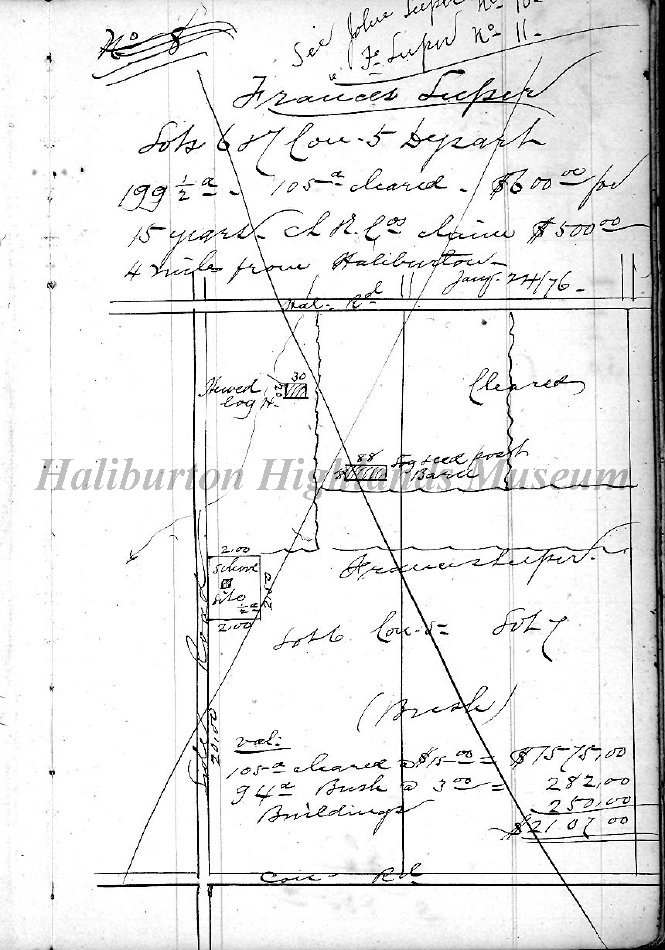 No 8
See John Super No 10
" Fs Super No 11.
Frances Super
Lots 6 & 7 Con. 5 Dysart
199 1/2 a - 105 a cleared - $600 00 for
15 years - C L R. Cos claim $500 00
4 miles from Haliburton -
Jany. 24/76 -
Hal. Rd
Hewed
log H.
30
20
Cleared
88
Barn
Haliburton Highlands Museum
2.00
School
Site
1/2 a
2.50
2.00
Frances Super.
Lot 6 Con. 5 Lot 7
Side Road
20.00
(Bush)
val:
105 a cleared @ $15 00 = $1575.00
94 a Bush @ 3 00 = 282.00
Buildings 250.00
$2107 00
Con Rd